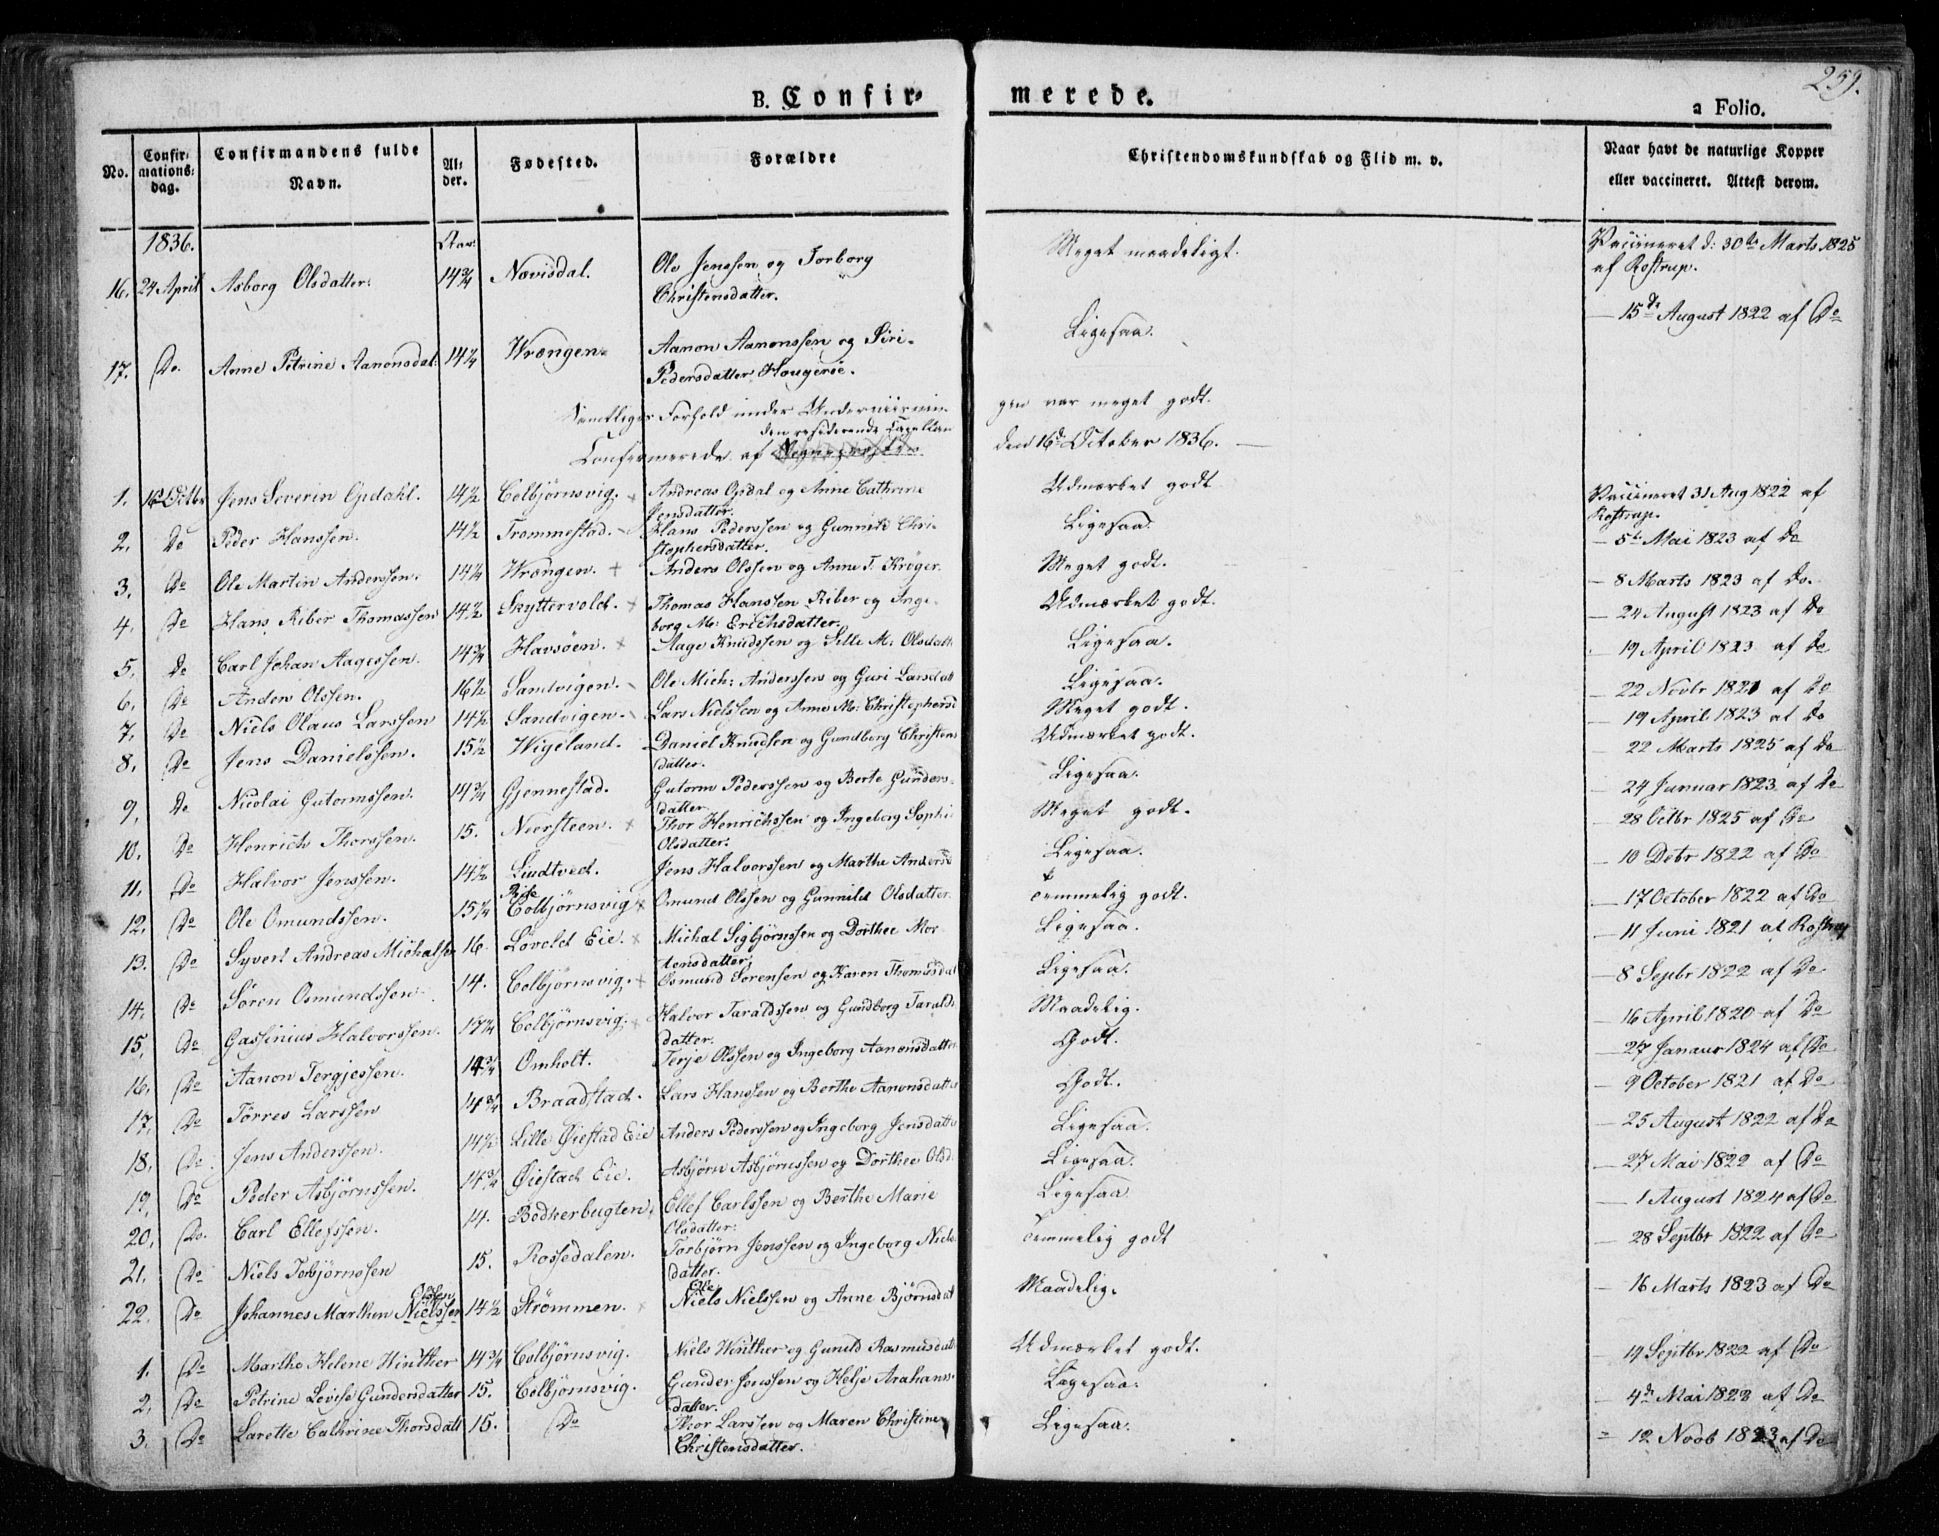 259.
B. Confir- merede. a Folio.
No. Confir- mations- dag. Confirmandens fulde Navn. Al- der. Fødested. Forældre Christendomskundskab og Flid m. v. Naar havt de naturlige Kopper eller vaccineret. Attest derom.
1836. Aar:
16. 24 April Asborg Olsdatter: 14¾ Nævisdal. Ole Jenssen og Torborg Meget maadeligt. Vaccineret d: 30te Marts 1825
Christensdatter. af Rostrup.
17. Do. Anne Petrine Aanonsdat: 14¼ Wrængen. Aanon Aanonssen og Siri Ligesaa. — 15de August 1822 af Do
Pedersdatter Hougerøe.
Samtliges Forhold under Underviisnin- gen var meget godt.
den residerende Capellan
Confirmerede af den 16de October 1836. —
1. 16 Octbr Jens Severin Opdahl. 14½ Colbjørnsvig. Andreas Opdal og Anne Cathrine Udmærket godt Vaccineret 31 Aug 1822 af
Jensdatter. Rostrup.
2. Do Peder Hanssen. 14½ Trommestad. Hans Pederssen og Gunnild Chri- Ligesaa. — 5te Mai 1823 af Do
stophersdatter.
3. Do Ole Martin Anderssen. 14¼ Wrængen. + Anders Olssen og Anne T. Krøger. Meget godt. — 8 Marts 1823 af Do.
4. Do Hans Riber Thomassen 14½ Skyttervold. + Thomas Hanssen Riber og Inge- Udmærket godt. — 24 August 1823 af Do
borg M: Erichsdatter.
5. Do Carl Johan Aagessen. 14¾ Havsøen. + Aage Knudssen og Sille M. Olsdatt Ligesaa. 19 April 1823 af Do
6. Do Anders Olssen. 16½ Sandvigen. Ole Mich: Anderssen og Guri Larsdatt Ligesaa. — 22 Novbr 1821 af Do
7. Do Niels Olaus Larssen 14½ Sandvigen. Lars Nielssen og Anne M: Christophersd Meget godt. — 19 April 1823 af Do
8. Do Jens Danielssen. 15½ Wigeland. Daniel Knudsen og Gundborg Christens Udmærket godt. — 22 Marts 1825 af Do
datter.
9. Do Nicolai Gutormssen. 14¾ Gjennestad. Gutorm Pederssen og Berte Gunders- Ligesaa. — 24 Januar 1823. af Do
datter
10. Do Henrich Thorssen. 15. Neersteen. + Thor Henrichssen og Ingeborg Sophi Meget godt. — 28 Octbr 1825 af Do
Olsdatter.
11. Do Halvor Jenssen. 14½ Lindtved. Jens Halvorssen og Marthe Andersd Ligesaa. — 10 Debr 1822 af Do
12. Do Ole Omundssen. 15¼ Colbjørnsvig + Omund Olssen og Gunnild Olsdatter. Temmelig godt. — 17 October 1822 af Do
13. Do Syvert Andreas Michalsen 16. Løvold Eie. + Michal Sigbjørnssen og Dorthee Mor- Ligesaa. — 11 Juni 1821 af Rostrup
tensdatter;
14. Do Søren Osmundssen 14. Colbjørnsvig. + Osmund Sørensen og Karen Thomasdat Ligesaa. — 8 Sepbr 1822 af Do
15. Do Gassinius Halvorssen. 17¼ Colbjørnsvig. + Halvor Taraldssen og Gundborg Taralds Maadelig. — 16 April 1820 af Do
datter.
16. Do Aanon Tergjessen. 14¾ Omholt. Terje Olssen og Ingeborg Aanonsdatter Godt. — 27 Janaur 1824 af Do
17. Do Tørres Larssen 14¾ Braadstad. Lars Hanssen og Berthe Aanonsdatter Godt. — 9 October 1821 af Do
18. Do Jens Anderssen. 14½ Lille Øiestad Eie Anders Pederssen og Ingeborg Jensdatter Ligesaa. — 25 August 1822 af Do
19. Do Peder Asbjørnssen. 14¾ Øiestad Eie. Asbjørn Asbjørnssen og Dorthee Olsd. Ligesaa. — 27 Mai 1822 af Do
20. Do. Carl Ellefssen. 14. Bødkerbugten Ellef Carlssen og Berthe Marie Ligesaa — 1 August 1824 af Do
Olsdatter:
21. Do Niels Torbjørnssen 15. Rossedalen. Torbjørn Jenssen og Ingeborg Niels- Temmelig godt — 28 Septbr 1822 af Do
datter.
Olsen Ole
22. Do Johannes Marthin Nielssen 14½ Strømmen. Niels Nielssen og Anne Bjørnsdat Maadelig. — 16 Marts 1823 af Do
1. Do Marthe Helene Winther 14¾ Colbjørnsvig. Niels Winther og Gunild Rasmusdatt Udmærket godt. — 19 Septbr 1822 af Do
2. Do Petrine Lovise Gundersdatter 15. Colbjørnsvig. Gunder Jenssen og Helje Arahams- Ligesaa. — 4de Mai 1823 af Do
datter.
3. Do Larette Cathrine Thorsdatt 15. Do Thor Larssen og Maren Christine Ligesaa. — 12 Novb 1823 af Do
Christensdatter.